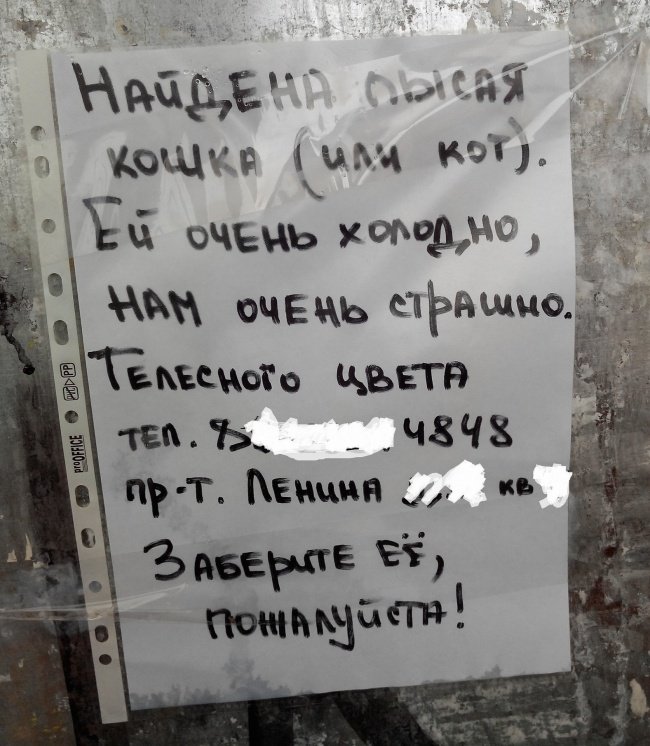 НАЙДЕНА ЛЫСАЯ
КОШКА (ИЛИ КОТ).
ЕЙ ОЧЕНЬ ХОЛОДНО,
НАМ ОЧЕНЬ СТРАШНО.
ТЕЛЕСНОГО ЦВЕТА
ТЕЛ. 8 4848
ПР-Т. ЛЕНИНА КВ
ЗАБЕРИТЕ ЕЁ,
ПОЖАЛУЙСТА!
proOFFICE
PP